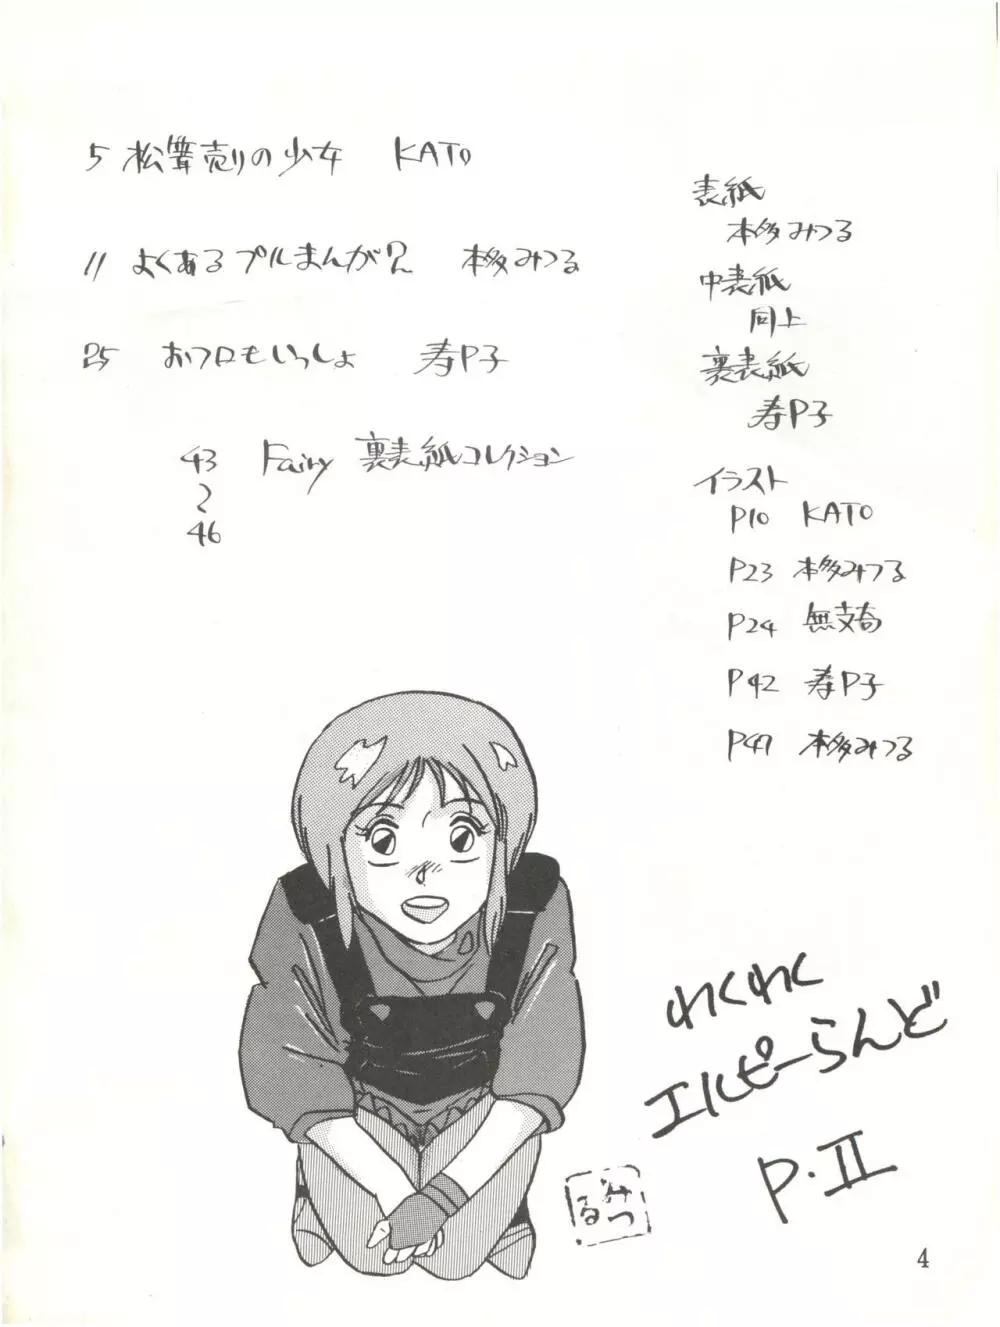 5 松茸売りの少女 KATO
11 よくあるプルまんが? 本多みつる
25 おフロもいっしょ 寿P子
43 Fairy 裏表紙コレクション
〜
46
表紙
本多みつる
中表紙
同上
裏表紙
寿P子
イラスト
P10 KATO
P23 本多みつる
P24 無支奇
P42 寿P子
P47 本多みつる
わくわく
エルピーらんど
P・II
みつる
4